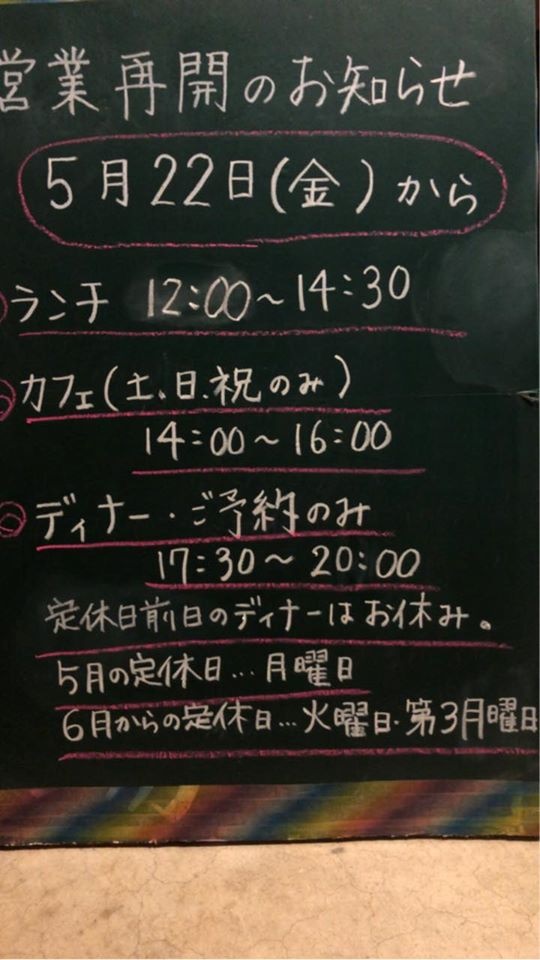 営業再開のお知らせ
5月22日(金)から
ランチ 12:00～14:30
カフェ(土、日、祝のみ)
14:00～16:00
ディナー・ご予約のみ
17:30～20:00
定休日前日のディナーはお休み。
5月の定休日…月曜日
6月からの定休日…火曜日・第3月曜日